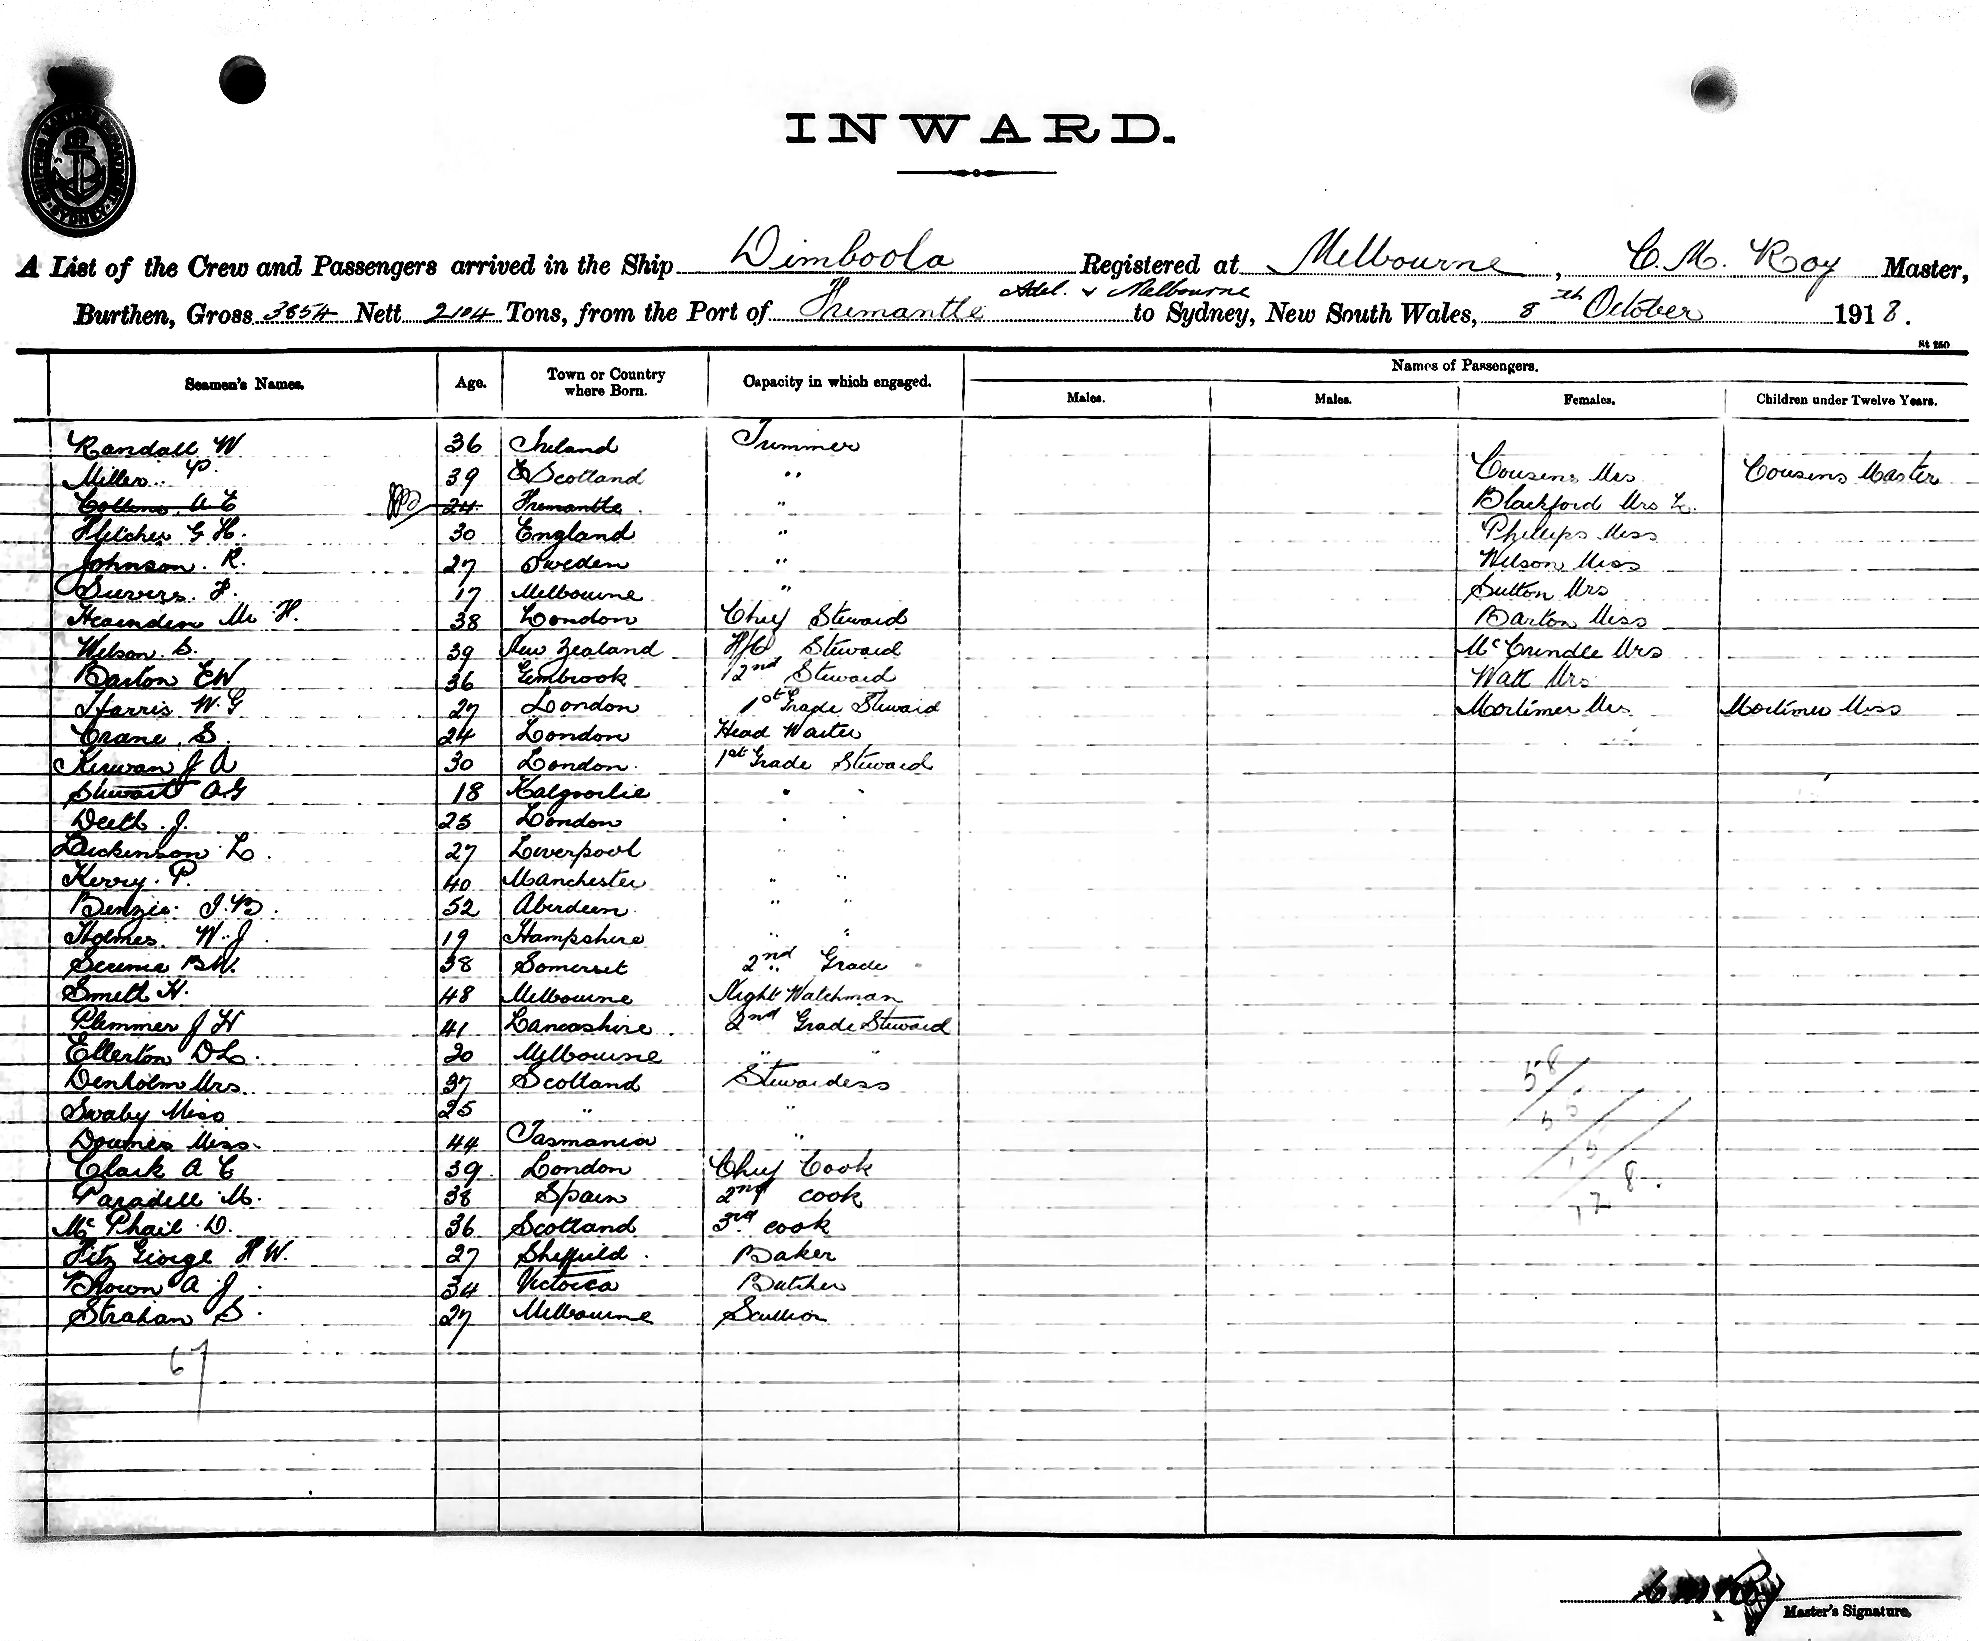 INWARD.
SYDNEY
A List of the Crew and Passengers arrived in the Ship Dimboola Registered at Melbourne, C. M. Roy Master,
Adel. & Melbourne
Burthen, Gross 3854 Nett 2104 Tons, from the Port of Fremantle to Sydney, New South Wales, 8th October 1918.
St 250
Seamen's Names. Age. Town or Country where Born. Capacity in which engaged. Names of Passengers.
Males. Males. Females. Children under Twelve Years.
Randall W 36 Ireland Trimmer
Miller P. 39 Scotland " Cousens Mrs Cousens Master
Collins A C 24 Fremantle " Blackford Mrs L.
Fletcher G H. 30 England " Phillips Miss
Johnson. R. 27 Sweden " Wilson Miss
Sievers. F. 17 Melbourne " Sutton Mrs
M. H. 38 London Chief Steward Barton Miss
Wilson. S. 39 New Zealand Steward McCrindle Mrs
Barton EW 36 Gembrook 2nd Steward Watt Mrs
Harris W.G 27 London 1st Grade Steward Mortimer Mrs Mortimer Miss
Crane. S. 24 London Head Waiter
Kirwan J A 30 London. 1st Grade Steward
Stewart A.G 18 Kalgoorlie " "
Deeth. J. 25 London " "
Dickinson L. 27 Liverpool " "
Kerry. P. 40 Manchester " "
Benzie. J.B. 52 Aberdeen " "
Holmes. W. J. 19 Hampshire " "
B.W. 38 Somerset 2nd Grade "
Smith H. 48 Melbourne Night Watchman
Plimmer J H 41 Lancashire. 2nd Grade Steward
Ellerton D L. 20 Melbourne " "
Denholm Mrs 37 Scotland Stewardess
Swaby Miss 25 " "
Downes Miss. 44 Tasmania "
Clark A C 39 London Chief Cook
Paradell M. 38 Spain 2nd cook
Mc Phail D. 36 Scotland 3rd cook
Fitz George H W. 27 Sheffield. Baker
Brown A J. 34 Victoria Butcher
Strahan S. 27 Melbourne Scullion
58
67
Master's Signature.